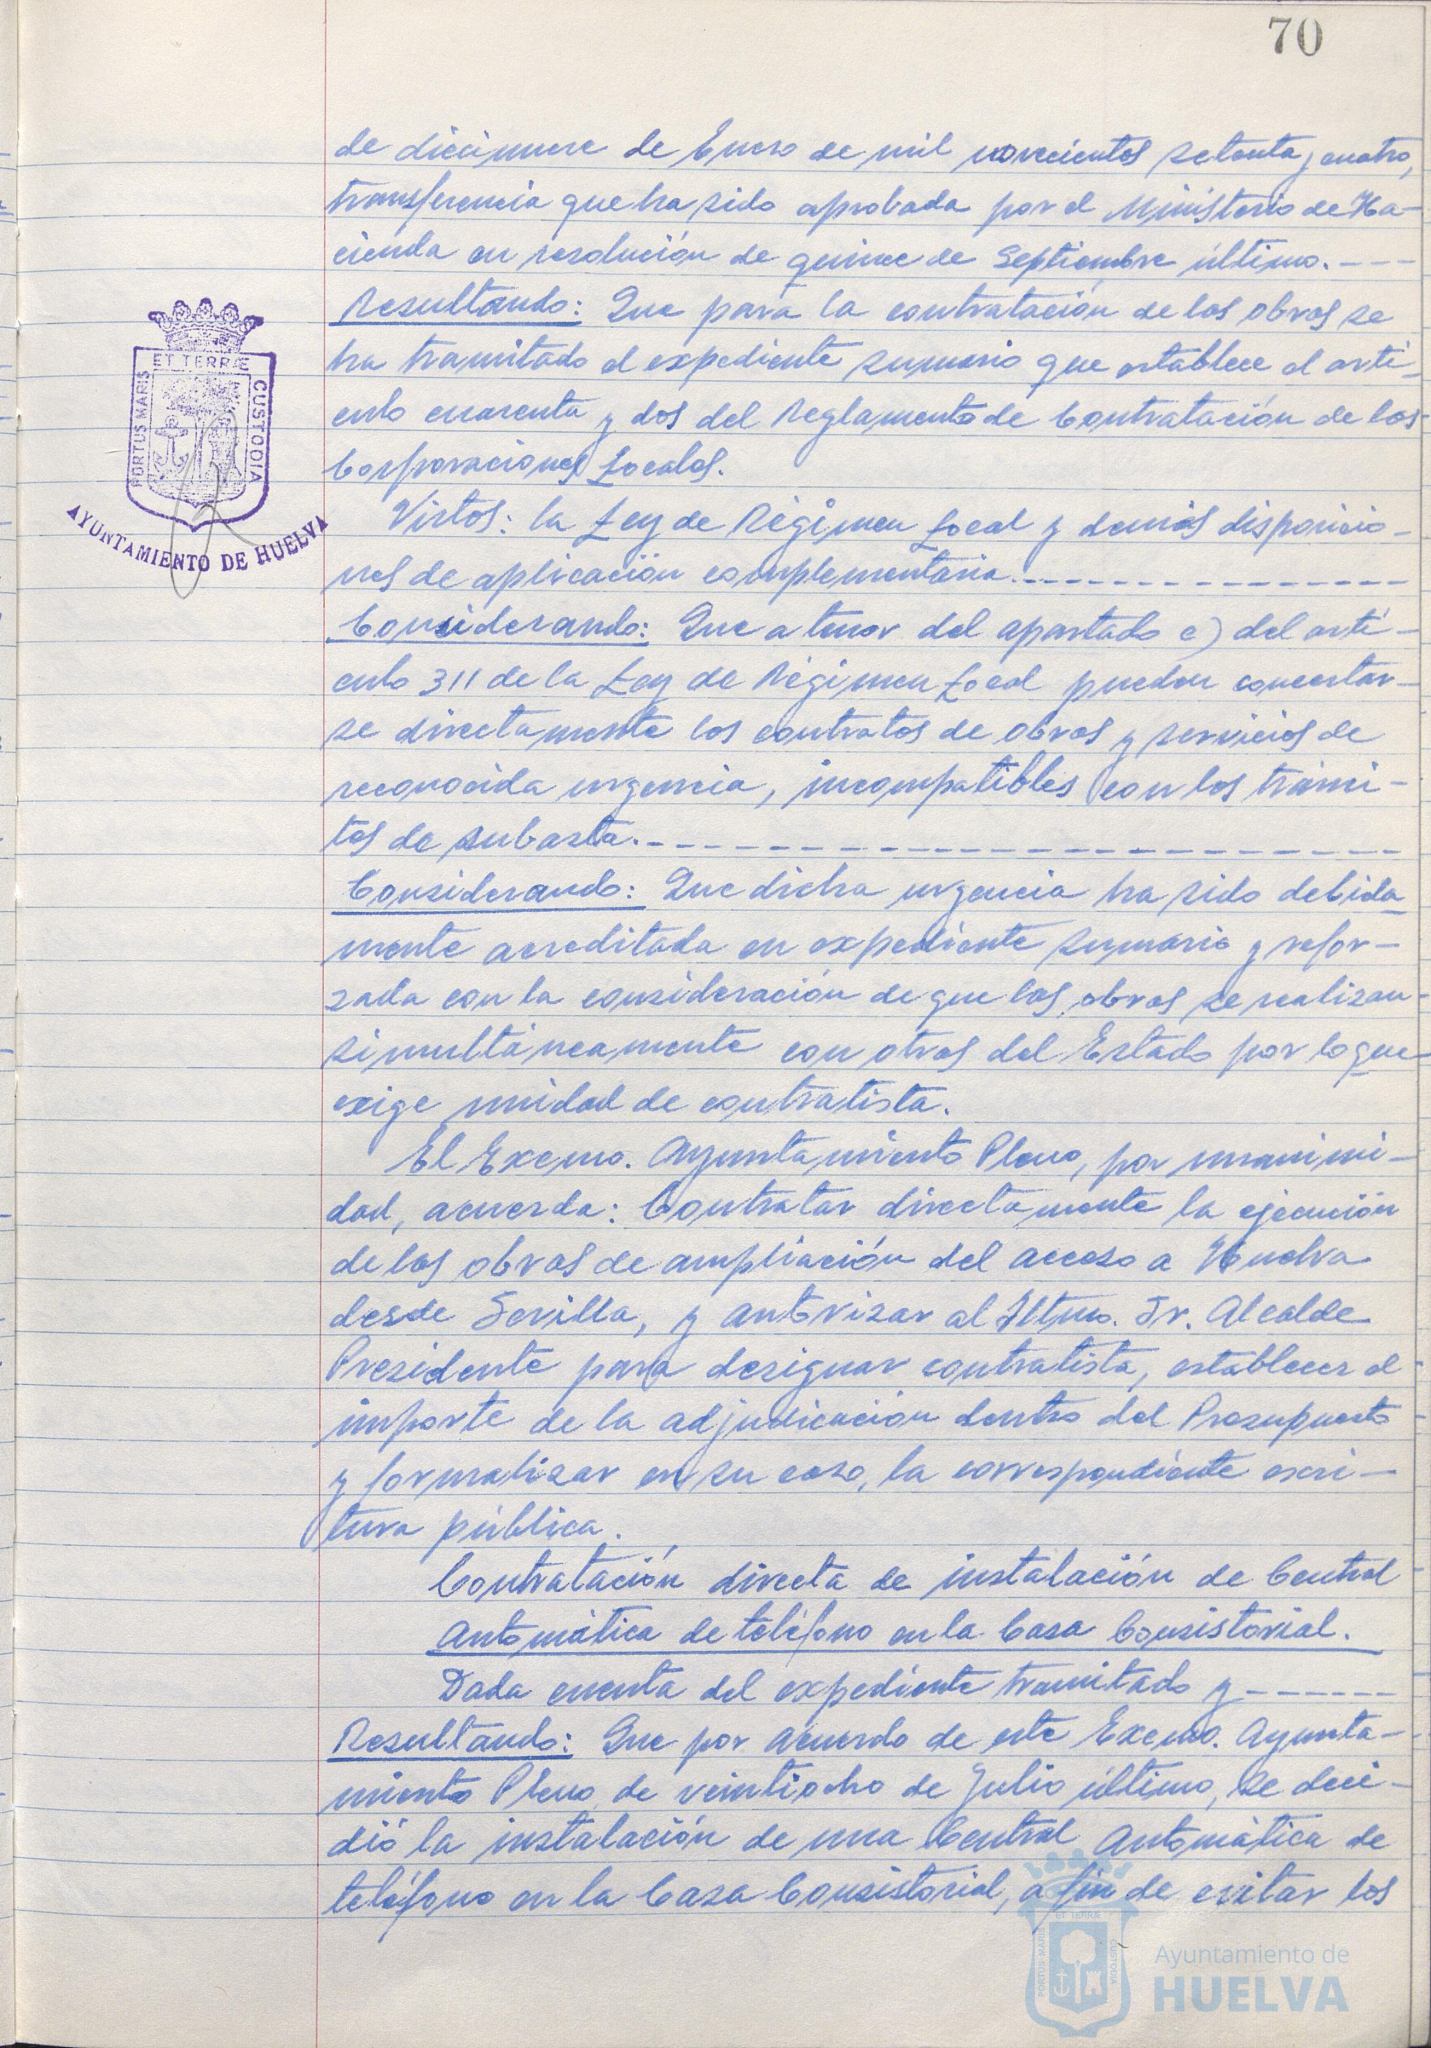 70
de diecinueve de Enero de mil novecientos setenta y cuatro,
transferencia que ha sido aprobada por el Ministerio de Ha-
cienda en resolución de quince de Septiembre último.---
Resultando: Que para la contratación de las obras se
ha tramitado el expediente sumario que establece el artí-
culo cuarenta y dos del Reglamento de Contratación de las
Corporaciones Locales.
Vistos: la Ley de Régimen Local y demás disposicio-
nes de aplicación complementaria.---------------
Considerando: Que a tenor del apartado c) del artí-
culo 311 de la Ley de Régimen Local pueden concertar-
se directamente los contratos de obras y servicios de
reconocida urgencia, incompatibles con los trámi-
tes de subasta.-----------------------
Considerando: Que dicha urgencia ha sido debida-
mente acreditada en expediente sumario y refor-
zada con la consideración de que las obras se realizan
simultáneamente con otras del Estado por lo que
exige unidad de contratista.
El Excmo. Ayuntamiento Pleno, por unanimi-
dad, acuerda: Contratar directamente la ejecución
de las obras de ampliación del acceso a Huelva
desde Sevilla, y autorizar al Iltmo. Sr. Alcalde
Presidente para designar contratista, establecer el
importe de la adjudicación dentro del Presupuesto
y formalizar en su caso, la correspondiente escri-
tura pública.
Contratación directa de instalación de Central
Automática de teléfono en la Casa Consistorial.
Dada cuenta del expediente tramitado y------
Resultando: Que por acuerdo de este Excmo. Ayunta-
miento Pleno de veintiocho de Julio último, se deci-
dió la instalación de una Central Automática de
teléfono en la Casa Consistorial, a fin de evitar los
PORTUS MARIS ET TERRÆ CUSTODIA
AYUNTAMIENTO DE HUELVA
PORTUS MARIS ET TERRÆ CUSTODIA
Ayuntamiento de
HUELVA